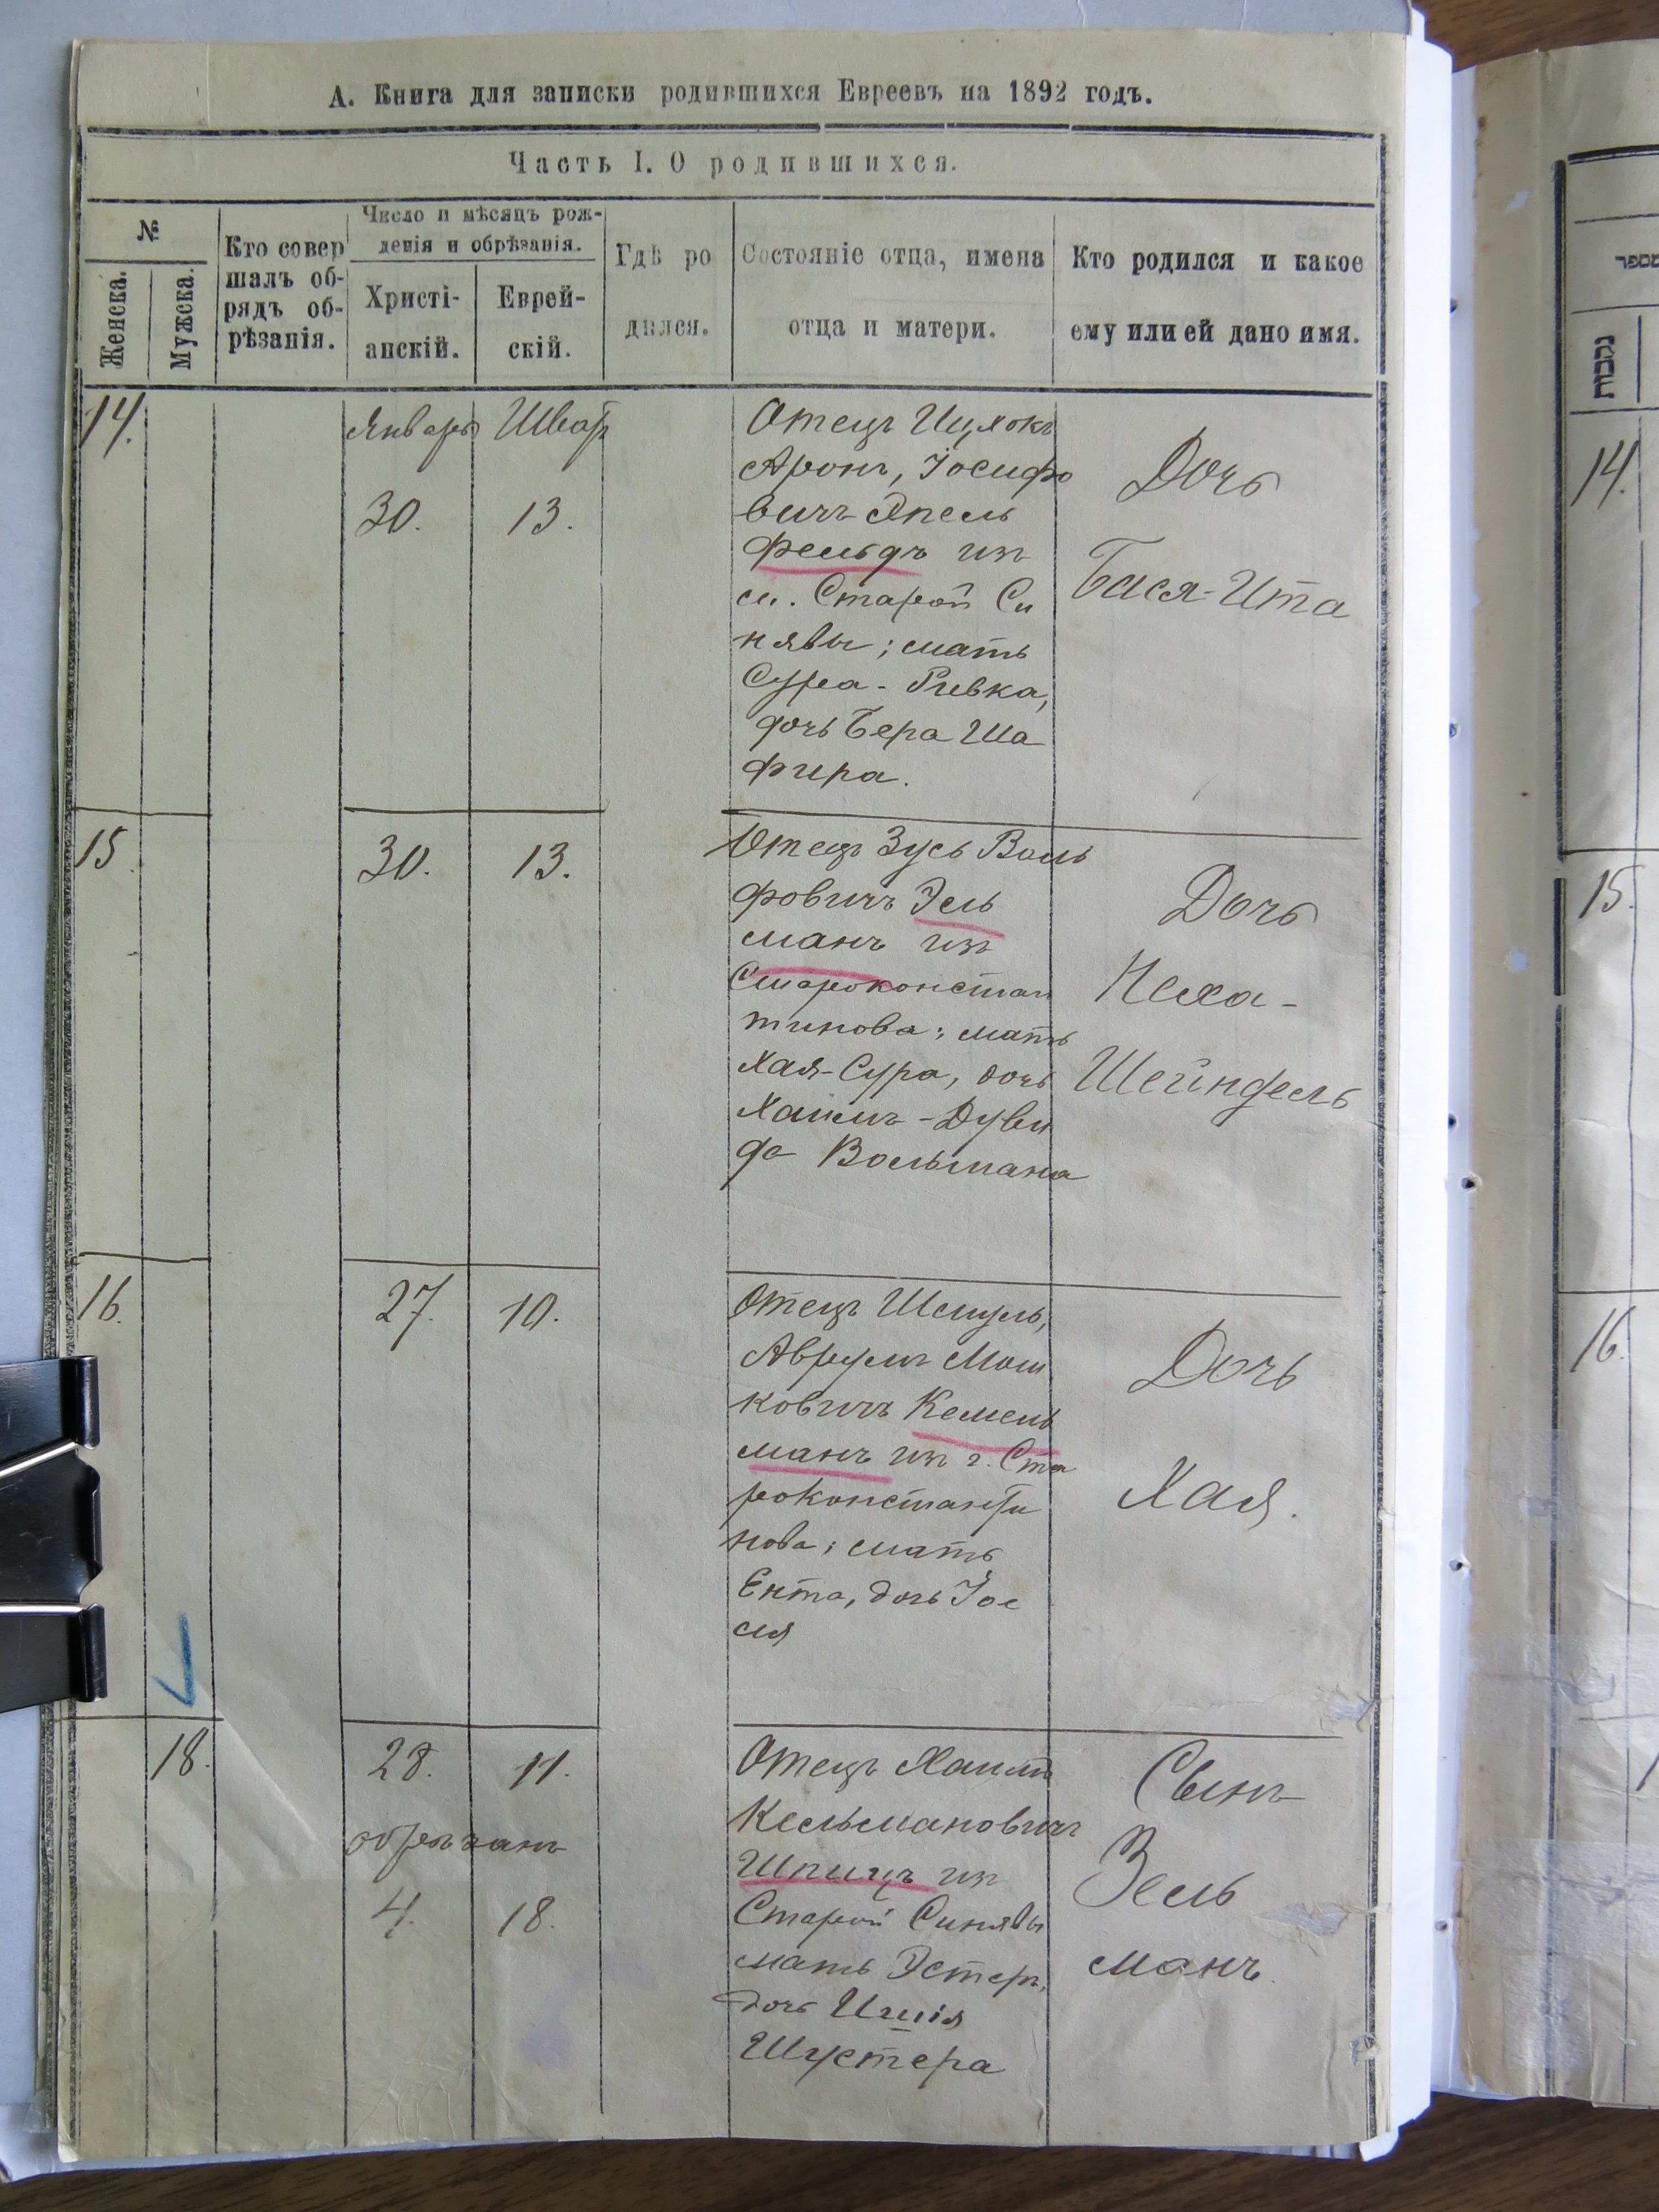 А. Книга для записки родившихся Евреевъ на 1892 годъ.
Часть I. О родившихся.
№
Женска.
Мужска.
Кто совер
шалъ об-
рядъ об-
рѣзанія.
Число и мѣсяцъ рож-
денія и обрѣзанія.
Христі-
анскій.
Еврей-
скій.
Гдѣ ро
дился.
Состояніе отца, имена
отца и матери.
Кто родился и какое
ему или ей дано имя.
14.
Январь
30.
Шват
13.
Отецъ Ицхокъ
Аронъ, Іосифо
вичъ Апель
фельдъ изъ
м. Старой Си
нявы; мать
Сура-Ривка,
дочь Бера Ша
фира.
Дочь
Бася-Ита
15.
30.
13.
Отецъ Зусь Воль
фовичъ Эель
манъ изъ
Староконстан
тинова; мать
Хая-Сура, дочь
Хаимъ-Дуви
да Вольмана
Дочь
Неха-
Шейндель
16.
27.
10.
Отецъ Шмуль,
Аврумъ Мош
ковичъ Кемель
манъ изъ г. Ста
роконстанти
нова; мать
Ента, дочь Іос
ся
Дочь
Хая.
18.
28.
11.
обрезанъ
4.
18.
Отецъ Хаимъ
Кельмановичъ
Шпицъ изъ
Старой Синявы
мать Эстеръ,
дочь Ишія
Шустера
Сынъ
Зель
манъ.
מספר
נקבות
14.
15.
16.